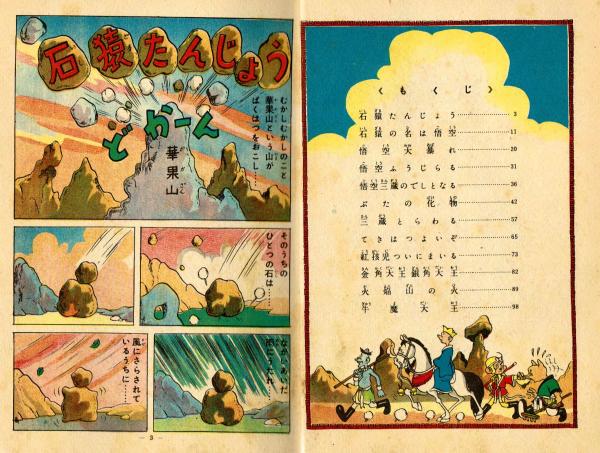 石猿たんじょう
どかーん
華果山
むかしむかしのこと
華果山という山が
ばくはつをおこし……
そのうちの
ひとつの石は……
ながいあいだ
雨にうたれ…
風にさらされて
いるうちに……
— 3 —
〈もくじ〉
石猿たんじょう 3
石猿の名は悟空 11
悟空大暴れ 20
悟空ふうじらる 31
悟空三蔵のでしとなる 36
ぶたの化物 42
三蔵とらわる 57
てきはつよいぞ 65
紅孩児ついにまいる 73
金角大王銀角大王 82
火焔山の火 89
牛魔大王 98